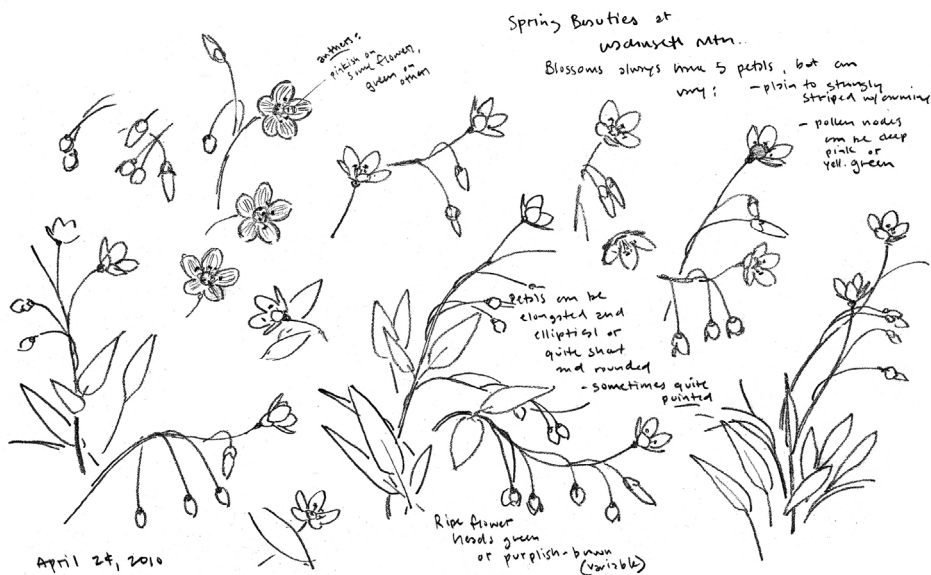 Spring Beauties at
Wachusett Mtn..
Blossoms always have 5 petals, but can
vary: - plain to strongly
striped w/crimine
- pollen nodes
can be deep
pink or
yell. green
anthers:
pinkish on
some flowers,
green on
others
Petals can be
elongated and
elliptical or
quite short
and rounded
- sometimes quite
pointed
Ripe flower
heads green
or purplish-brown
(variable)
April 24, 2010